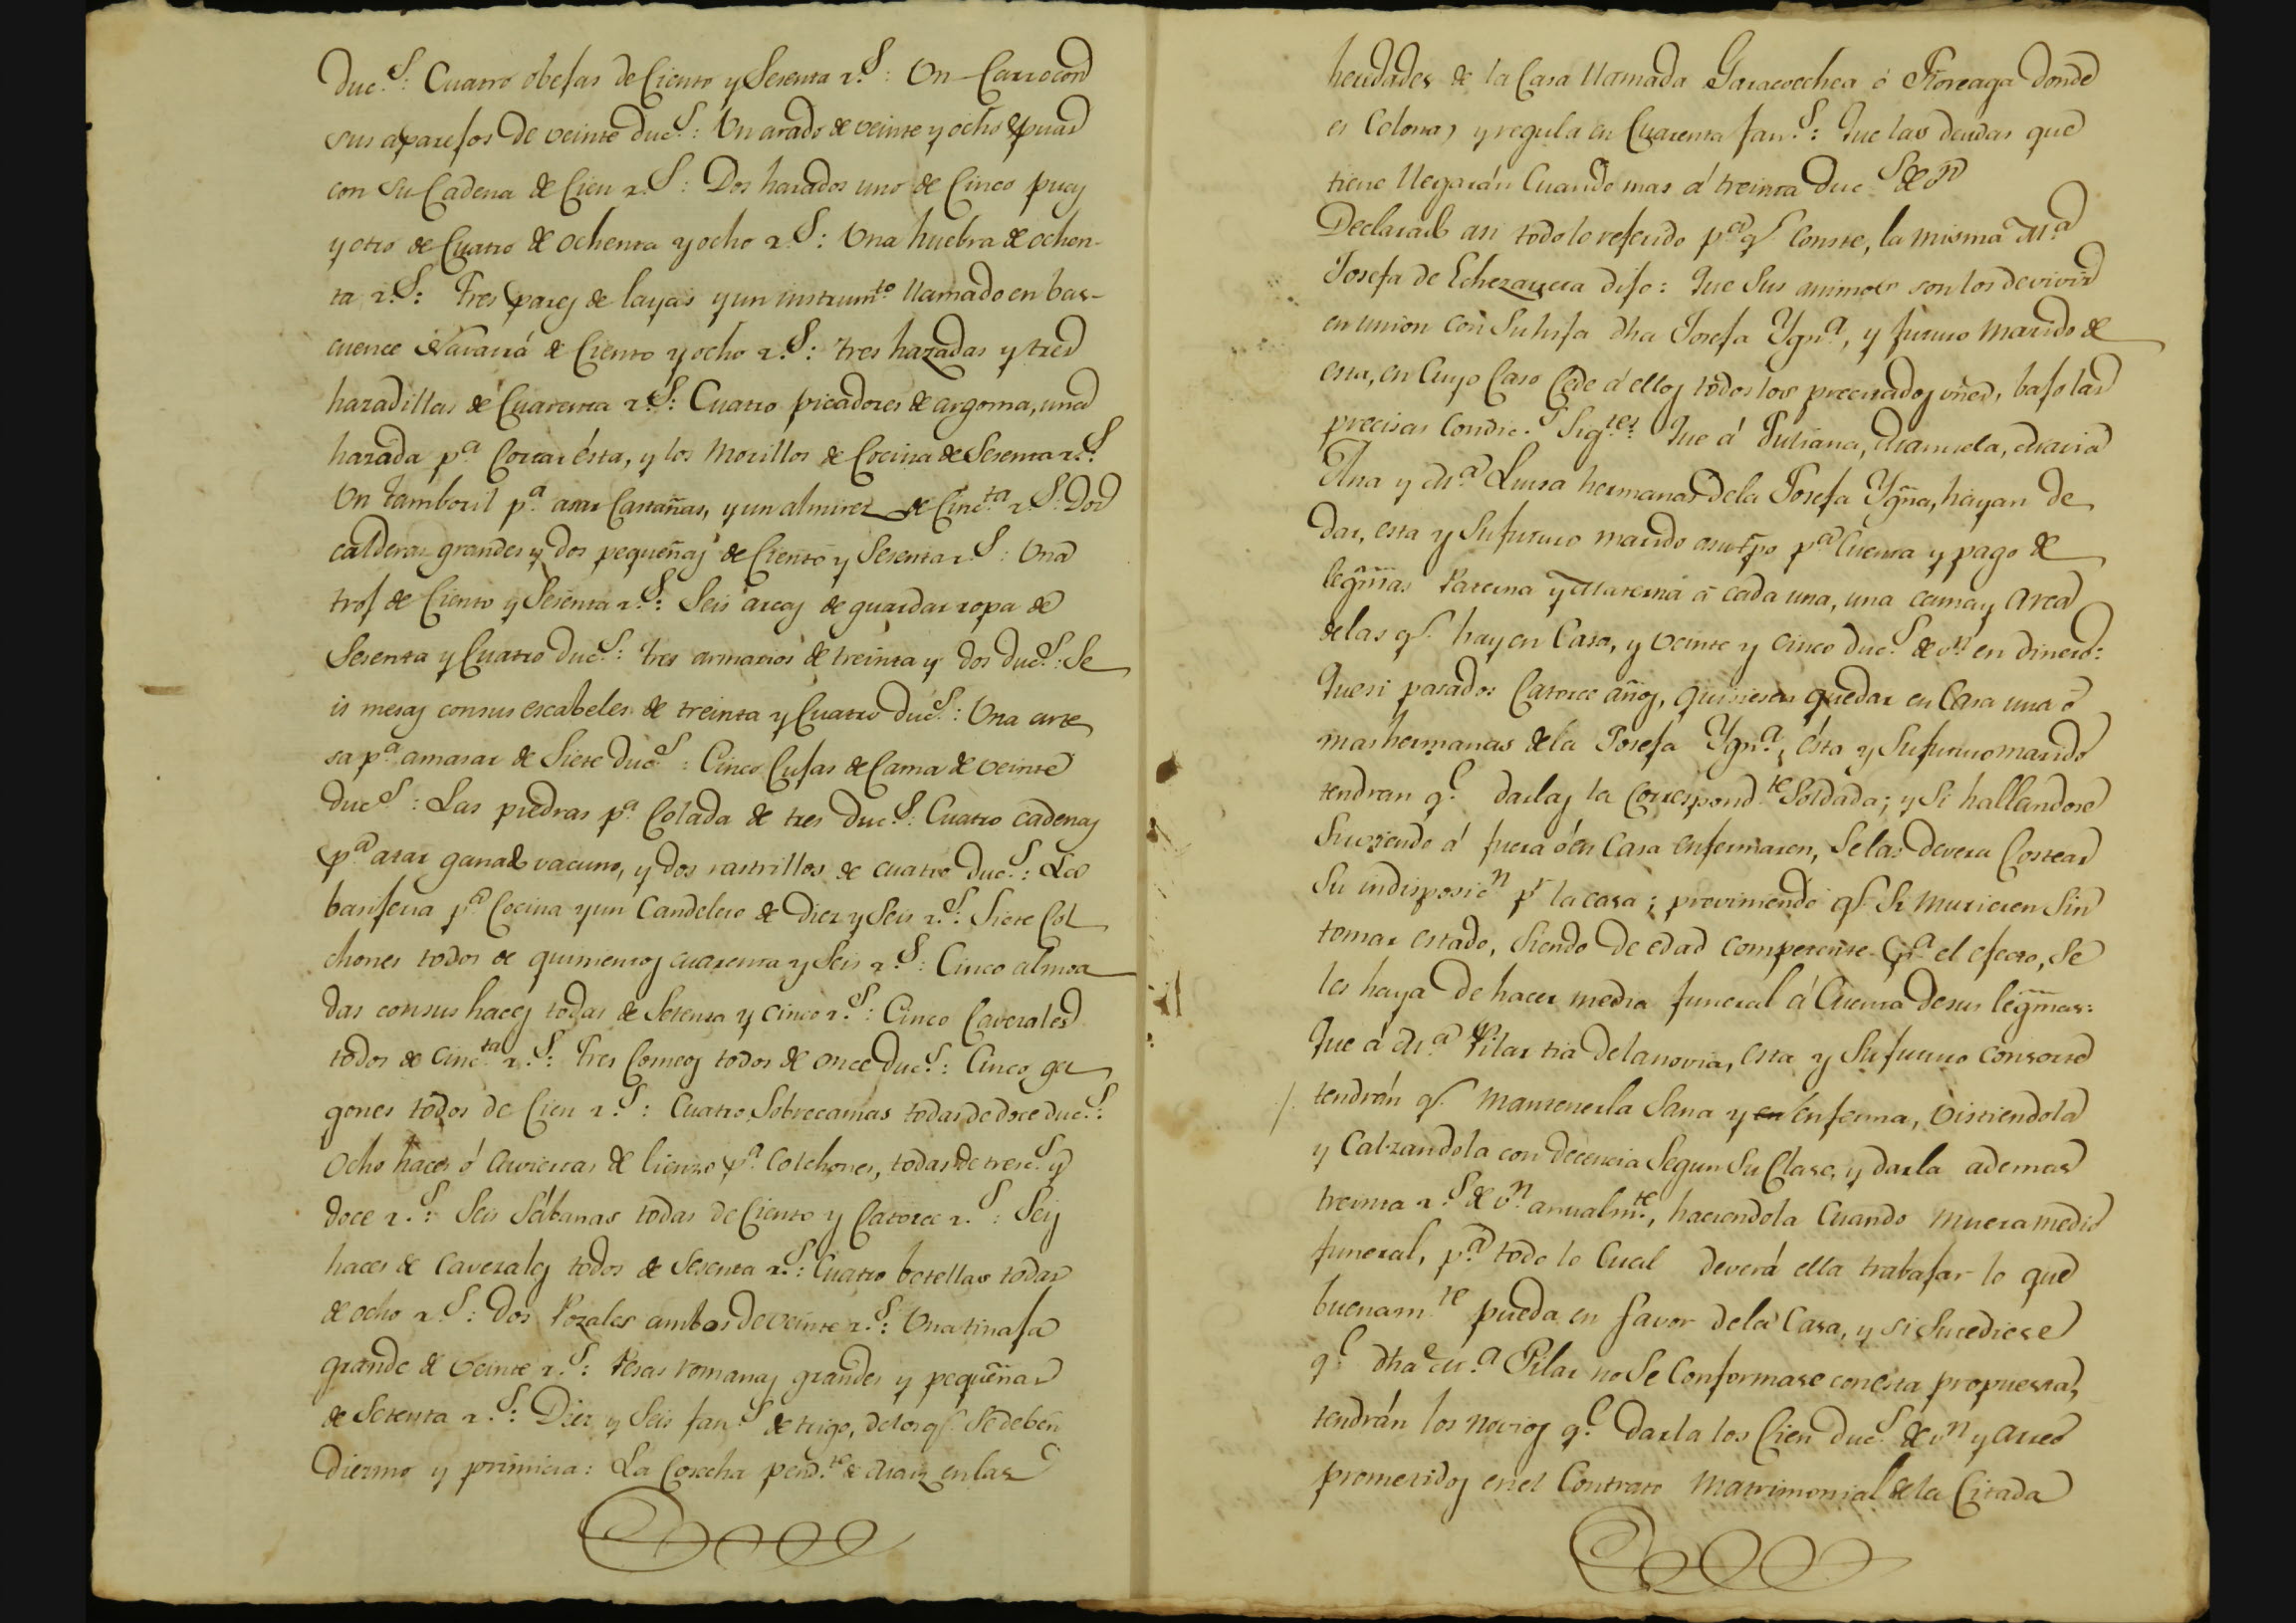 duc.s: Cuatro obejas de Ciento y Sesenta r.s: Un Carro con
sus aparejos de veinte duc.s: Un arado de veinte y ocho puas
con su Cadena de Cien r.s: Dos harados uno de Cinco puas
y otro de Cuatro de ochenta y ocho r.s: Una huebra de ochen-
ta r.s: tres pares de layas y un instrum.to llamado en bas-
cuence Navarrá de Ciento y ocho r.s: tres hazadas y tres
hazadillas de Cuarenta r.s: Cuatro picadores de argoma, una
hazada p.a Cortar ésta, y los Morillos de Cocina de Sesenta r.s:
Un tamboril p.a asar Castañas, y un almirez de Cinc.ta r.s: Dos
calderas grandes y dos pequeñas de Ciento y Sesenta r.s: Una
troj de Ciento y Sesenta r.s: Seis arcas de guardar ropa de
Sesenta y Cuatro duc.s: tres armarios de treinta y dos duc.s: Se
is mesas con sus escabeles de treinta y Cuatro duc.s: Una arte
sa p.a amasar de Siete duc.s: Cinco Cujas de Cama de veinte
duc.s: Las piedras p.a Colada de tres duc.s: Cuatro cadenas
p.a atar ganado vacuno, y dos rastrillos de cuatro duc.s: La
banferia p.a Cocina y un Candelero de diez y Seis r.s: Siete Col
chones todos de quinientos cuarenta y Seis r.s: Cinco almoa
das con sus haces todas de Setenta y cinco r.s: Cinco Cavezales
todos de Cinc.ta r.s: tres Comeos todos de once duc.s: Cinco ga
gones todos de Cien r.s: Cuatro Sobrecamas todas de doce duc.s:
Ocho haces ó cuviertas de lienzo p.a Colchones, todas de tresc.s y
doce r.s: Seis Sábanas todas de Ciento y Catorce r.s: Seis
haces de Cavezales todos de Sesenta r.s: Cuatro botellas todas
de ocho r.s: dos Pozales ambos de veinte r.s: Una tinaja
grande de veinte r.s: Pesas romanas grandes y pequeñas
de Setenta r.s: Diez y Seis fan.s de trigo, de los q.e Se deben
Diezmo y primicia: La Cosecha pend.te de Maiz en las
heredades de la Casa llamada Garaecechea ó Floreaga donde
es Colona, y regula en Cuarenta fan.s: Que las deudas que
tiene llegarán Cuando mas á treinta duc.s de v.n
Declarado asi todo lo referido p.a q.e Conste, la misma M.a
Josefa de Echezarreta dijo: Que Sus animos son los de vivir
en union con Su hija dha Josefa Ygn.a, y futuro marido de
esta, en Cuyo Caso Cede á ellos todos los precitados vñes, bajo las
precisas Condic.s Sig.tes: Que á Juliana, Manuela, Maria
Ana y M.a Luisa hermanas de la Josefa Ygña, hayan de
dar, esta y Su futuro marido a su tpo p.a Cuenta y pago de
legmas Paterna y Materna á cada una, una cama y Arca
de las q.e hay en Casa, y veinte y cinco duc.s de v.n en dinero:
Que si pasados Catorce años, quisieren quedar en Casa una ó
mas hermanas de la Josefa Ygn.a, ésta y Su futuro marido
tendran q.e darlas la Correspond.te Soldada; y Si hallandose
Sirviendo á fuera ó en Casa enfermaren, Selas devera Costear
Su indisposic.n p.r la casa; previniendo q.e Si murieren Sin
tomar estado, Siendo de edad competente p.a el efecto, Se
les haya de hacer medio funeral á Cuenta de sus legmas:
Que á M.a Pilar tia de la novia, esta y Su futuro consorte
tendrán q.e mantenerla Sana y en enferma, vistiendola
y Calzandola con decencia Segun Su Clase, y darla ademas
treinta r.s de v.n anualm.te, haciendola Cuando muera medio
funeral, p.a todo lo Cual deverá ella trabajar lo que
buenam.te pueda en favor de la Casa, y si Sucediese
q.e dha M.a Pilar no Se Conformase con esta propuesta,
tendrán los novios q.e darla los Cien duc.s de v.n y arreo
prometidos en el Contrato Matrimonial de la Citada